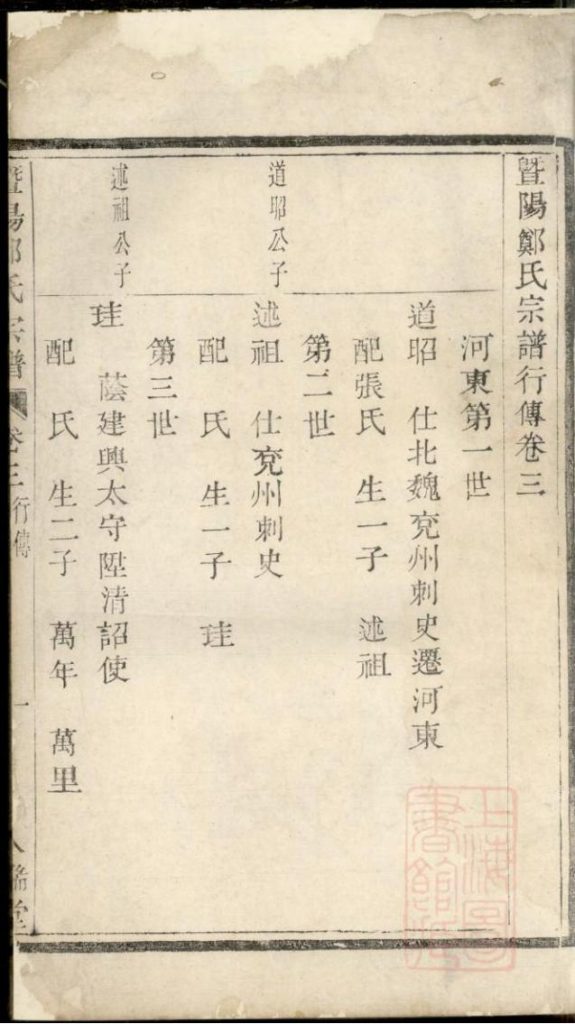 暨陽鄭氏宗譜行傳卷三
河東第一世
道昭 仕北魏兗州刺史遷河東
配張氏 生一子 述祖
第二世
道昭公子
述祖 仕兗州刺史
配 氏 生一子 珪
第三世
述祖公子
珪 蔭建興太守陞清詔使
配 氏 生二子 萬年 萬里
暨陽鄭氏宗譜 卷之三 行傳 一
上海圖書館藏